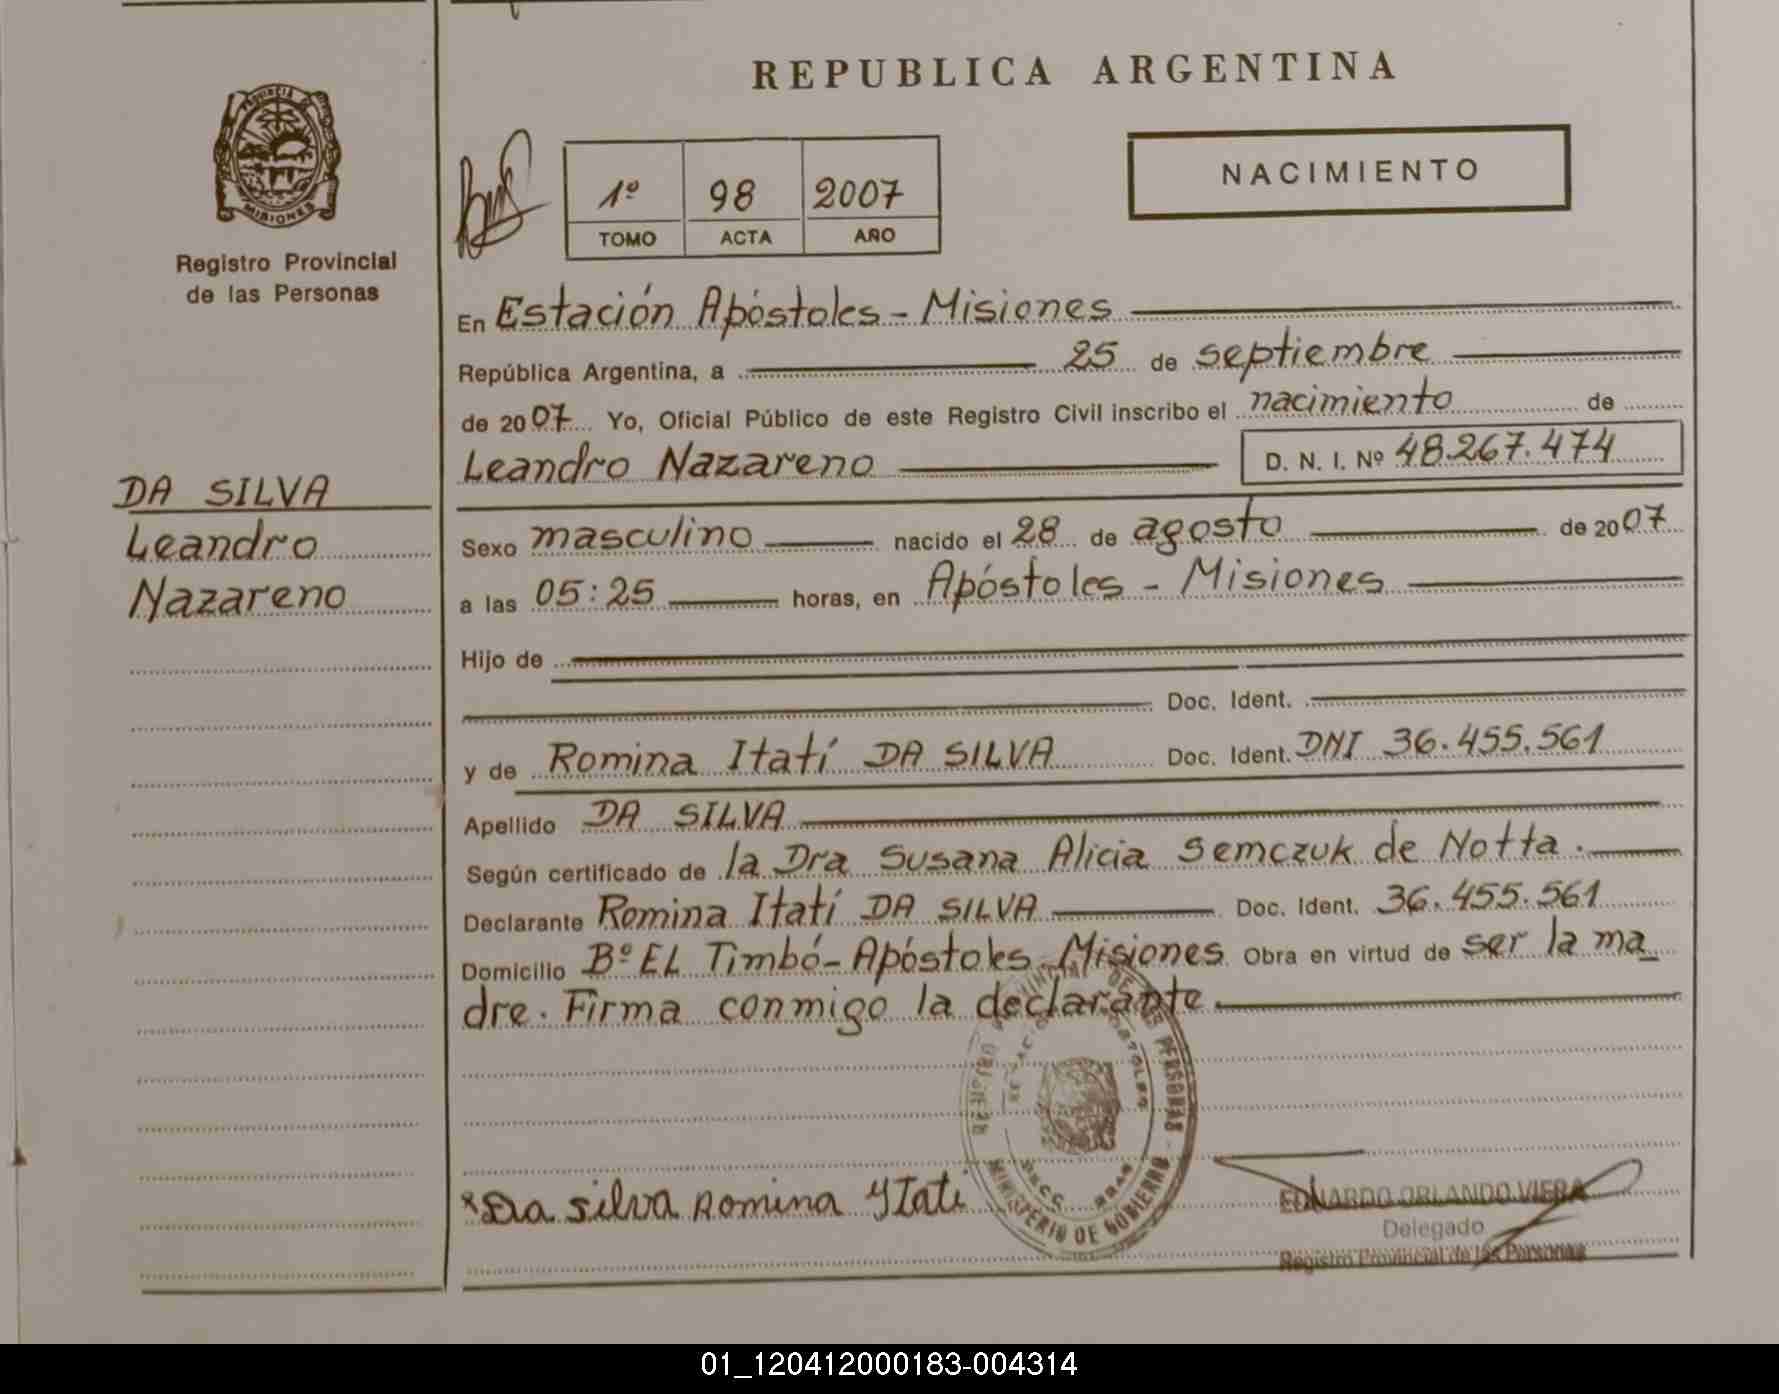 REPUBLICA ARGENTINA
PROVINCIA DE
MISIONES
Registro Provincial
de las Personas
1º 98 2007
TOMO ACTA AÑO
NACIMIENTO
En Estación Apóstoles - Misiones
República Argentina, a 25 de septiembre
de 2007 Yo, Oficial Público de este Registro Civil inscribo el nacimiento de
Leandro Nazareno D. N. I. Nº 48.267.474
DA SILVA
Leandro
Nazareno
Sexo masculino nacido el 28 de agosto de 2007
a las 05:25 horas, en Apóstoles - Misiones
Hijo de
Doc. Ident.
y de Romina Itatí DA SILVA Doc. Ident. DNI 36.455.561
Apellido DA SILVA
Según certificado de la Dra Susana Alicia Semczuk de Notta.
Declarante Romina Itatí DA SILVA Doc. Ident. 36.455.561
Domicilio Bº EL Timbó - Apóstoles - Misiones Obra en virtud de ser la ma
dre. Firma conmigo la declarante
DE LAS PERSONAS
MINISTERIO DE GOBIERNO
x Da Silva Romina Ytati
EDUARDO ORLANDO VIERA
Delegado
Registro Provincial de las Personas
01_120412000183-004314